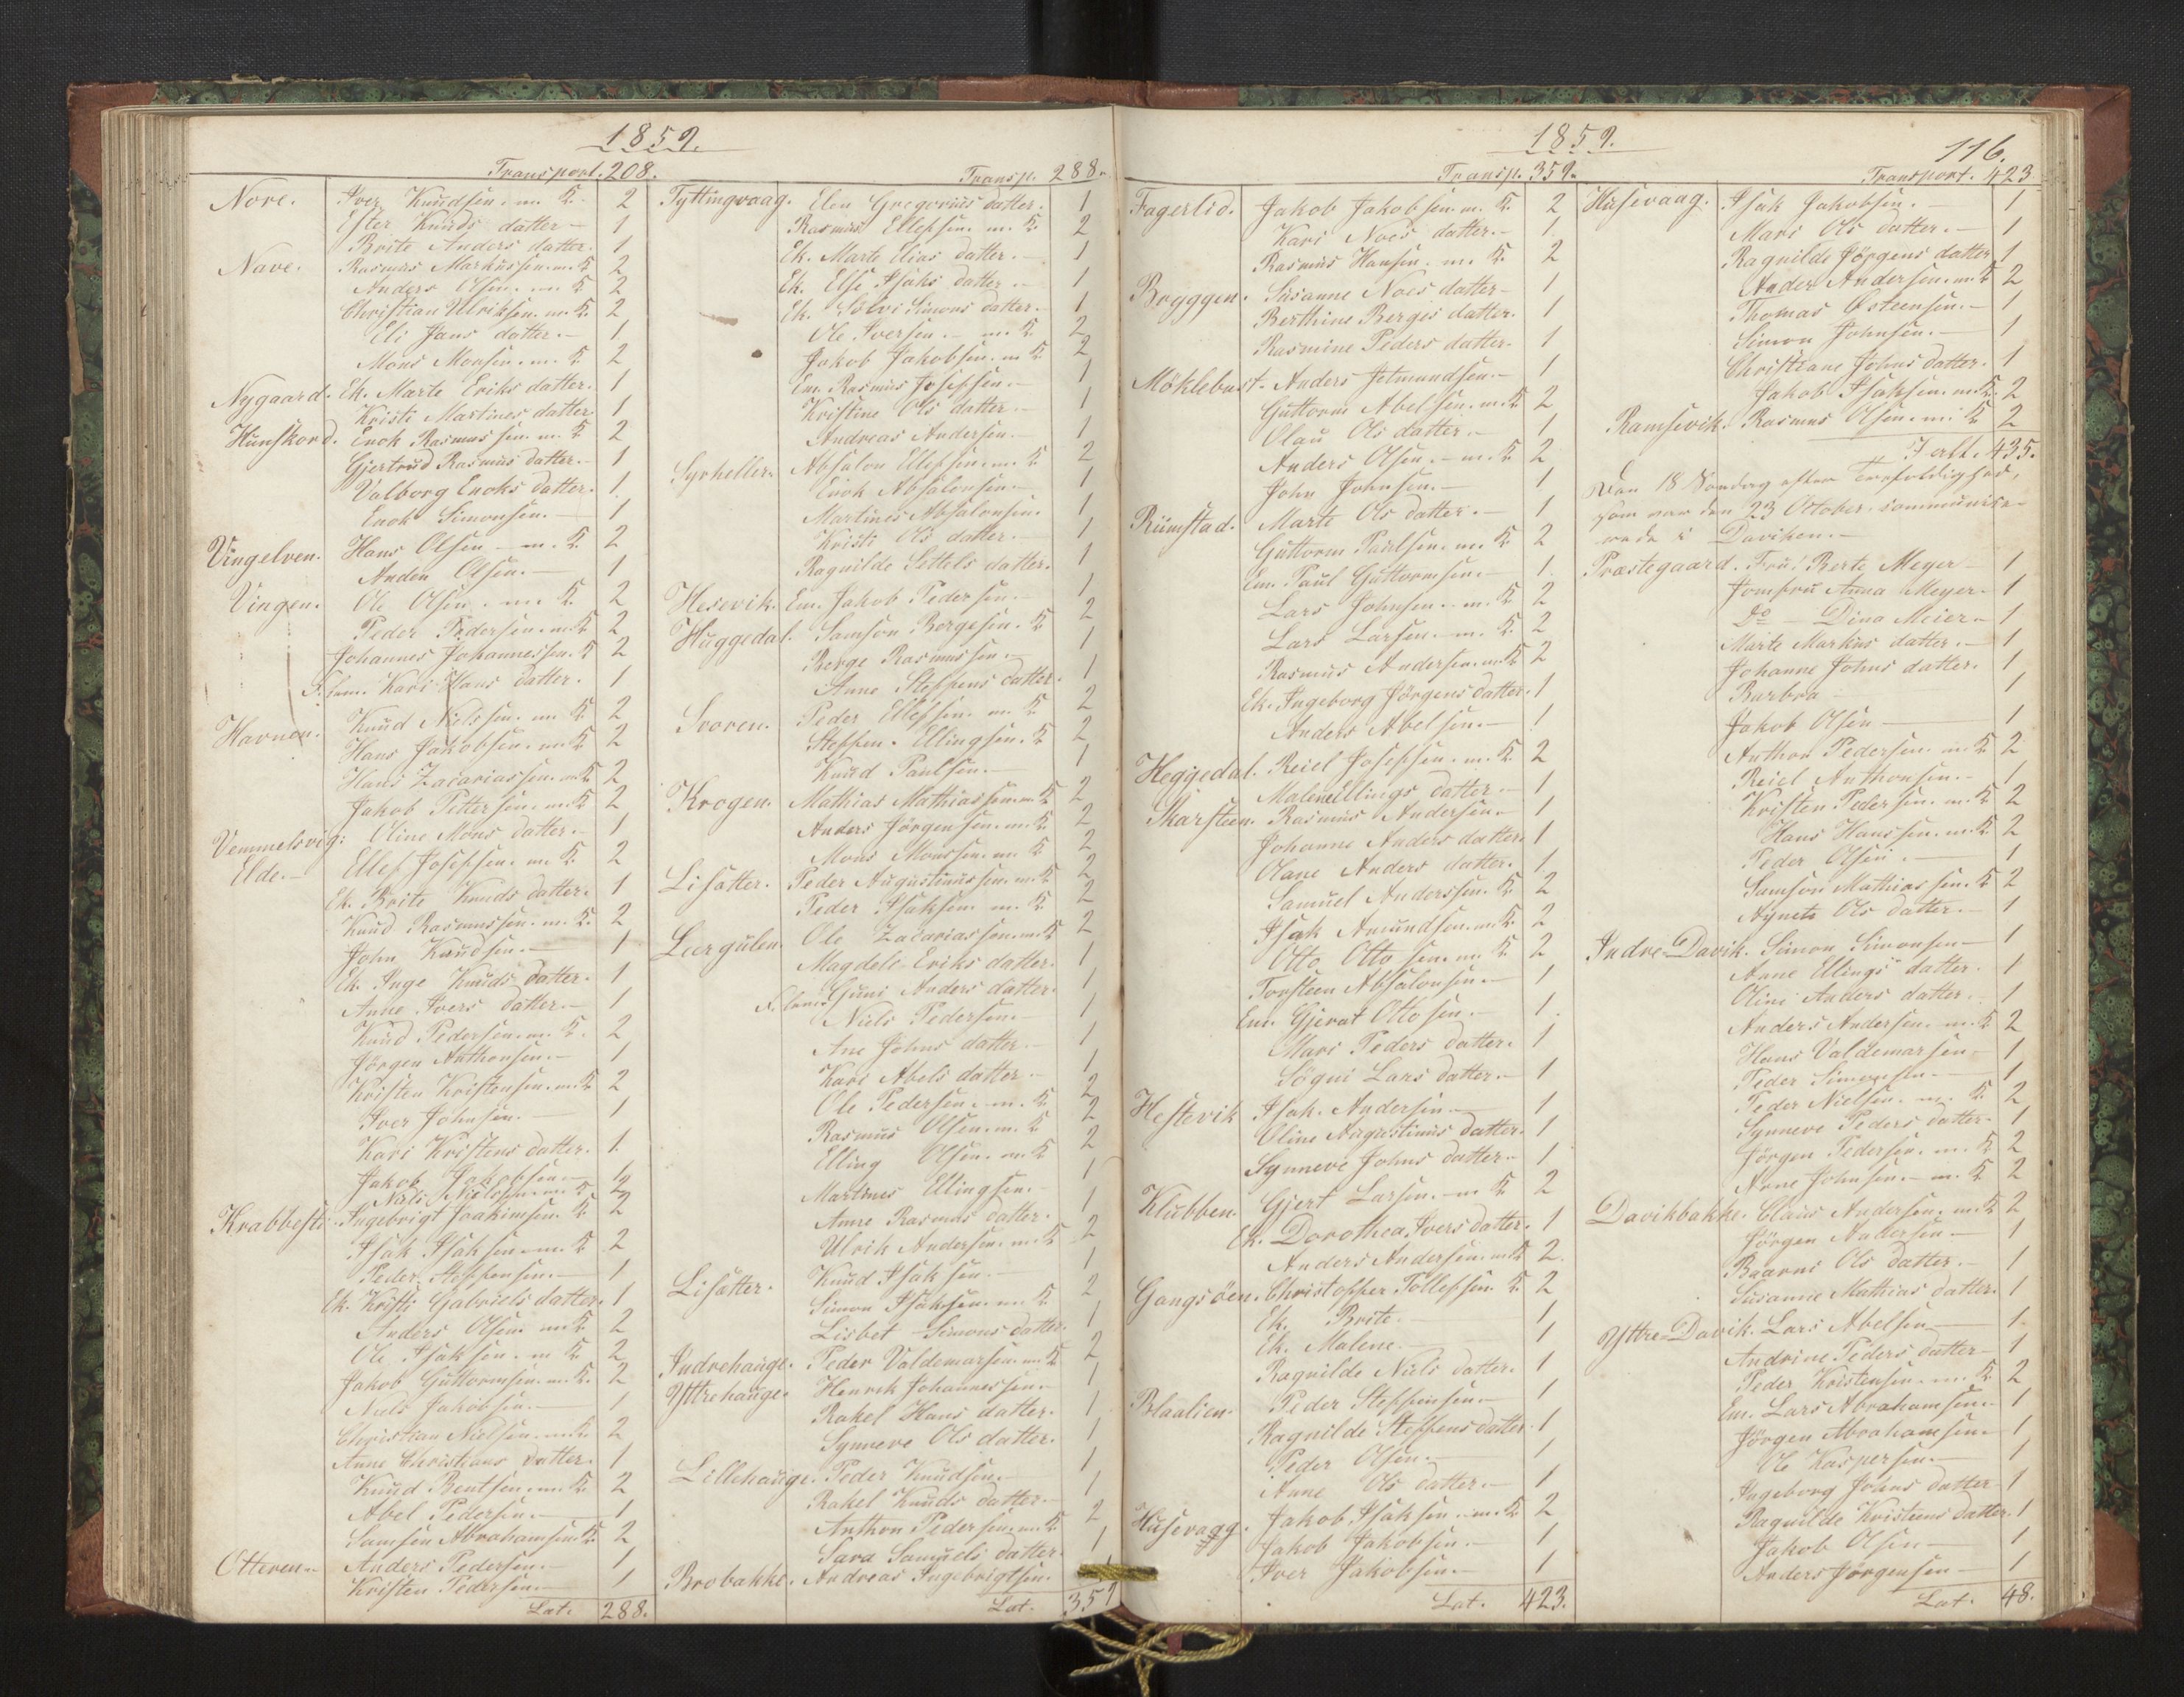 1859.
Transport. 208.
Nore. Iver Knudsen. m. K. 2
Ester Knuds datter 1
Brite Anders datter. 1
Nave. Rasmus Markussen. m. K 2
Anders Olsen. m. K 2
Christian Ulriksen. m. K. 2
Eli Jans datter. 1
Mons Monsen. m. K 2
Nygaard. Ek. Marte Eriks datter. 1
Kristi Martines datter 1
Hunskord. Enok Rasmussen. m. K 2
Gjertrud Rasmus datter. 1
Valborg Enoks datter. 1
Enok Simonsen. 1
Vingelven. Hans Olsen m. K. 2
Anden Olsen. 1
Vingen. Ole Olsen. m. K. 2
Peder Pedersen. m. K 2
Johannes Johannessen. K 2
Kari Hans datter. 1
Havnen. Knud Nielssen. m. K 2
Hans Jakobsen. m. K 2
Hans Zacariassen. m. K 2
Jakob Pettersen. m. K 2
Vemmelsvig: Oline Mons datter. 1
Elde. Ellef Josefsen. m. K. 2
Ek. Brite Knuds datter. 1
Knud Rasmussen. m. K. 2
John Knudsen. 1
Ek. Inge Knuds datter. 1
Anne Ivers datter. 1
Knud Pedersen. m. K. 2
Jörgen Anthonsen. 1
Kristen Kristensen. m. K 2
Iver Johnsen. 1
Kari Kristens datter. 1
Jakob Jakobsen 1
Niels Nielssen m K 2
Krabbesti. Ingebrigt Joakimsen. K 2
Isak Isaksen. m. K 2
Peder Steffensen. 1
Ek. Kristi Gabriels datter. 1
Anders Olsen m K 2
Ole Isaksen. m K. 2
Jakob Guttormsen. m. K. 2
Niels Jakobsen. 1
Christian Nielsen. m. K 2
Anne Christians datter. 1
Knud Bentsen. m. K. 2
Abel Pedersen. 1
Samson Abrahamsen. K. 2
Otteren. Anders Pedersen. 1
Kristen Pedersen. 1
Lat. 288.
Transp. 288.
Tyttingvaag. Elen Gregorius datter. 1
Rasmus Ellefsen. m. K 2
Ek. Marte Elias datter. 1
Ek. Else Isaks datter 1
Ek. Sölvi Simons datter. 1
Ole Iversen. m. K 2
Jakob Jakobsen. m K 2
Em. Rasmus Josefsen. 1
Kristine Ols datter. 1
Andreas Andersen. 1
Syrheller. Absalon Ellefsen. m. K 2
Enok Absalonsen. 1
Martines Absalonsen. 1
Kristi Ols datter. 1
Ragnilde Settels datter. 1
Hesevik. Em. Jakob Pedersen. 1
Huggedal. Samson Borgesen. K 2
Berge Rasmussen. 1
Anne Steffens datter. 1
Svoren. Peder Ellefsen. m. K 2
Steffen. Ellingsen. K 2
Knud Paulsen. 1
Krogen. Mathias Mathiassen. m K 2
Anders Jörgensen. m. K. 2
Mons Monssen. m. K 2
Lisötter. Peder Augustinussen. m. K 2
Peder Isaksen m. K. 2
Leergulen. Ole Zacariassen. m. K 2
Magdele Eriks datter. 1
Guni Anders datter. 1
Niels Pedersen. 1
Ane Johns datter. 1
Kari Abels datter. 1
Ole Pedersen. m. K. 2
Rasmus Olsen. m. K 2
Elling Olsen. m. K 2
Martines Ellingsen. 1
Anne Rasmus datter. 1
Ulrik Andersen. m. K 2
Knud Isaksen. 1
Lisötter. Simon Isaksen. m. K. 2
Lisbet Simons datter. 1
Indrehauge. Peder Valdemarsen. m K 2
Yttrehauge. Henrik Johannessen. 1
Rakel Hans datter. 1
Synneve Ols datter. 1
Lillehauge. Peder Knudsen. 1
Rakel Knuds datter. 1
Anthon Pedersen. m. K 2
Sara Samuels datter. 1
Brobakke. Andreas Ingebrigtsen.
Lat. 357
1859.
116.
Transp. 359.
Fagerlid. Jakob Jakobsen. m. K. 2
Kari Noes datter. 1
Rasmus Hansen. m. K 2
Bryggen. Susanne Noes datter 1
Berthine Berges datter. 1
Rasmine Peders datter. 1
Möklebust. Anders Jetmundsen. 1
Guttorm Abelsen. m. K 2
Olau Ols datter. 1
Anders Olsen. m. K 2
John Johnsen. 1
Rumstad. Marte Ols datter. 1
Guttorm Paulsen. m. K 2
Em. Paul Guttormsen. 1
Lars Johnsen. m. K 2
Lars Larsen. m. K. 2
Rasmus Andersen. m. K 2
Ek. Ingeborg Jörgens datter. 1
Anders Abelsen. 1
Heggedal. Reiel Josefsen. m. K 2
Malene Ellings datter. 1
Skarsteen. Rasmus Andersen. 1
Johanne Anders datter. 1
Olane Anders datter. 1
Samuel Anderssen. K. 2
Isak Amundsen. m. K 2
Otto Ottosen. m. K 2
Torsteen Absalonsen. 1
Em. Gjerat Ottosen. 1
Mari Peders datter. 1
Sögni Lars datter. 1
Hestevik Isak. Andersen. 1
Oline Augustinus datter. 1
Synneve Johns datter. 1
Klubben. Gjert Larsen. m K 2
Ek. Dorothea Ivers datter. 1
Anders Andersen. m. K 2
Gangsöen. Christoffer Tollefsen. K 2
Ek. Brite. 1
Ek. Malene. 1
Ragnilde Niels datter. 1
Blaalien. Peder Steffensen. 1
Ragnilde Steffens datter. 1
Peder Olsen. 1
Anne Ols datter. 1
Husevaag. Jakob Isaksen. m. K 2
Jakob Jakobsen. 1
Iver Jakobsen. 1
Lat. 423.
Transport. 423
Husevaag. Isak Jakobsen. 1
Mari Ols datter. 1
Ragnilde Jörgens datter 1
Ander Andersen. m. K 2
Thomas Östeensen. 1
Simon Johnsen. 1
Christiane Johns datter. 1
Jakob Isaksen. m. K. 2
Ramsevik. Rasmus Olsen. m. K 2
I alt. 435.
Den 18 Søndag efter Trefoldighed,
som var den 23 October. communice-
rede i Daviken.
Præstegaard. Fru! Berte Meyer 1
Jomfru Anna Meyer. 1
Do Dina Meier. 1
Marte Markus datter. 1
Johanne Johns datter. 1
Barbra 1
Jakob Olsen 1
Anthon Pedersen. m. K 2
Reiel Anthonsen. 1
Kristen Pedersen. m. K 2
Hans Hanssen. m. K. 2
Peder Olsen. 1
Samson Mathiassen. K 2
Agnete Ols datter. 1
Indre-Davik. Simon Simonsen 1
Anne Ellings datter. 1
Olini Anders datter. 1
Anders Andersen. m. K 2
Hans Valdemarsen 1
Peder Simonsen. 1
Peder Nielsen. m. K 2
Synneve Peders datter. 1
Jörgen Pedersen. m. K 2
Arne Johnsen. m. K 2
Davikbakke. Claus Andersen. m. K 2
Jörgen Andersen 1
Raarni Ols datter. 1
Susanne Mathias datter. 1
Yttre-Davik. Lars Abelsen 1
Andrine Peders datter 1
Peder Kristensen. m. K 2
Em. Lars Abrahamsen. 1
Jörgen Abrahamsen 1
Ole Kaspersen. 1
Ingeborg Johns datter 1
Ragnilde Kristens datter. 1
Jakob Olsen 1
Anders Jörgensen 1
Lat. 48.